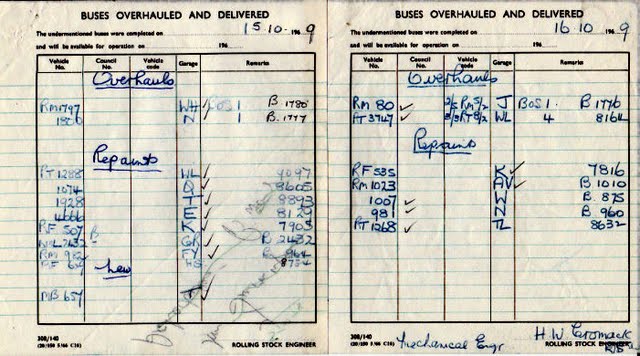 BUSES OVERHAULED AND DELIVERED
The undermentioned buses were completed on 15.10. 196 9
and will be available for operation on 196
Vehicle No. Council No. Vehicle code Garage Remarks
Overhauls
RM 1797 WH BOS 1 B 1780
1800 N B. 1777
Repaints
RT 1288 WL 4097
1074 Q 8605
1928 T 8893
4066 E 8129
RF 507 B K 7903
RML 2432 GR B 2432
RM B 964
RF 8754
New
MB 657 T
308/140
ROLLING STOCK ENGINEER
BUSES OVERHAULED AND DELIVERED
The undermentioned buses were completed on 16.10 196 9
and will be available for operation on 196
Vehicle No. Council No. Vehicle code Garage Remarks
Overhauls
RM 80 J BOS 1. B 1776
RT 3747 WL 4 8164
Repaints
RF 535 K 7816
RM 1023 AV B 1010
1007 W B. 875
981 N B. 960
RT 1268 TL 8632
308/140
ROLLING STOCK ENGINEER
Mechanical Engr
H.W. Cromack